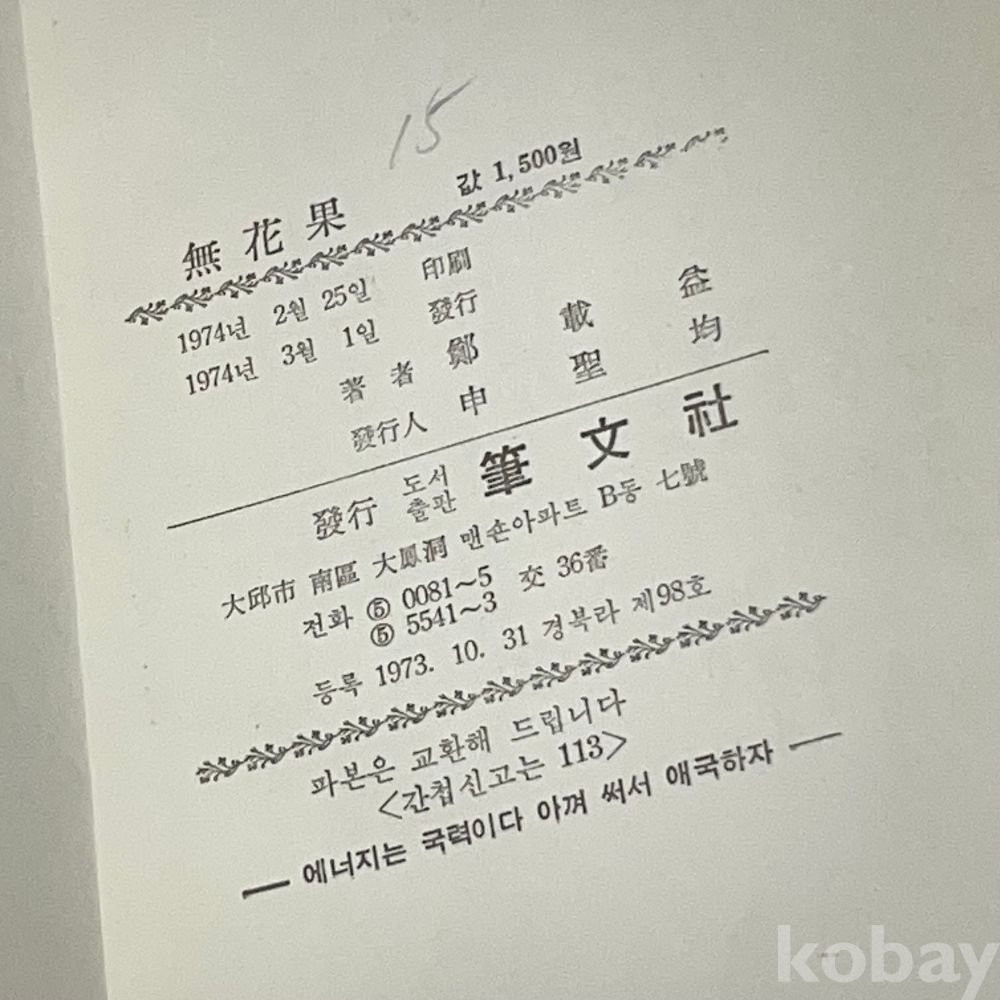 15
無花果 값 1,500원
1974년 2월 25일 印刷
1974년 3월 1일 發行
著者 鄭載益
發行人 申聖均
發行 도서출판 筆文社
大邱市 南區 大鳳洞 맨숀아파트 B동 七號
전화 ⑤ 0081~5 交 36番
⑤ 5541~3
등록 1973. 10. 31 경북라 제98호
파본은 교환해 드립니다
<간첩신고는 113>
— 에너지는 국력이다 아껴 써서 애국하자 —
kobay